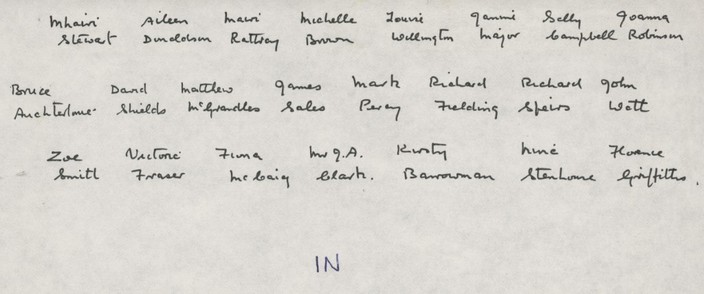 Mhairi Aileen Mairi Michelle Louise Jannie Sally Joanna
Stewart Donaldson Rattray Brown Wellington Major Campbell Robinson
Bruce David Matthew James Mark Richard Richard John
Auchterlonie Shields McGrandles Sales Percy Fielding Speirs Watt
Zoe Victoria Fiona Mr J.A. Kirsty Florence
Smith Fraser McCaig Clark. Barrowman Stenhouse Griffiths.
IN